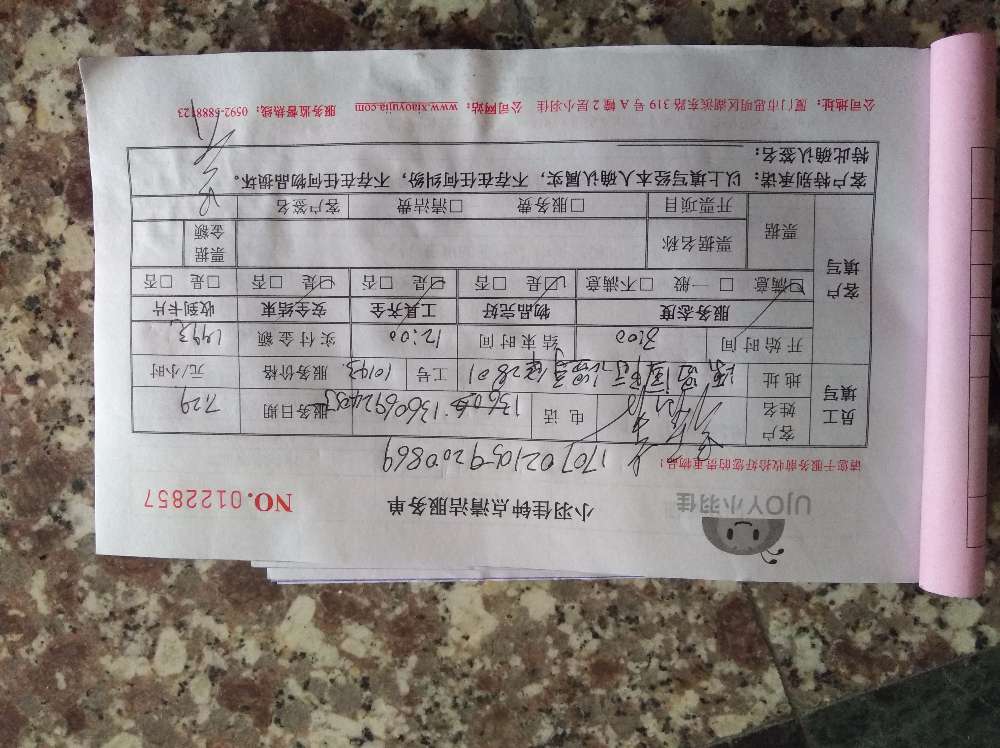 UJOY小羽佳
小羽佳钟点清洁服务单
NO.0122857
请您于服务前收拾好您的贵重物品!
1707021059200869
员工填写
客户姓名
电话
服务日期
7.29
地址
2801
工号
10193
服务价格
元/小时
开始时间
3:00
结束时间
12:00
实付金额
客户填写
服务态度
物品完好
工具齐全
安全结束
收到卡片
☑满意 □一般 □不满意
☑是 □否
☑是 □否
☑是 □否
□是 □否
票据
票据名称
票据金额
开票项目
□服务费 □清洁费
客户签名
客户特别承诺：以上填写经本人确认属实，不存在任何纠纷，不存在任何物品损坏。
特此确认签名：
公司地址：厦门市思明区湖滨东路319号A幢2层小羽佳 公司网站：www.xiaoyujia.com 服务监督热线：0592-5888123